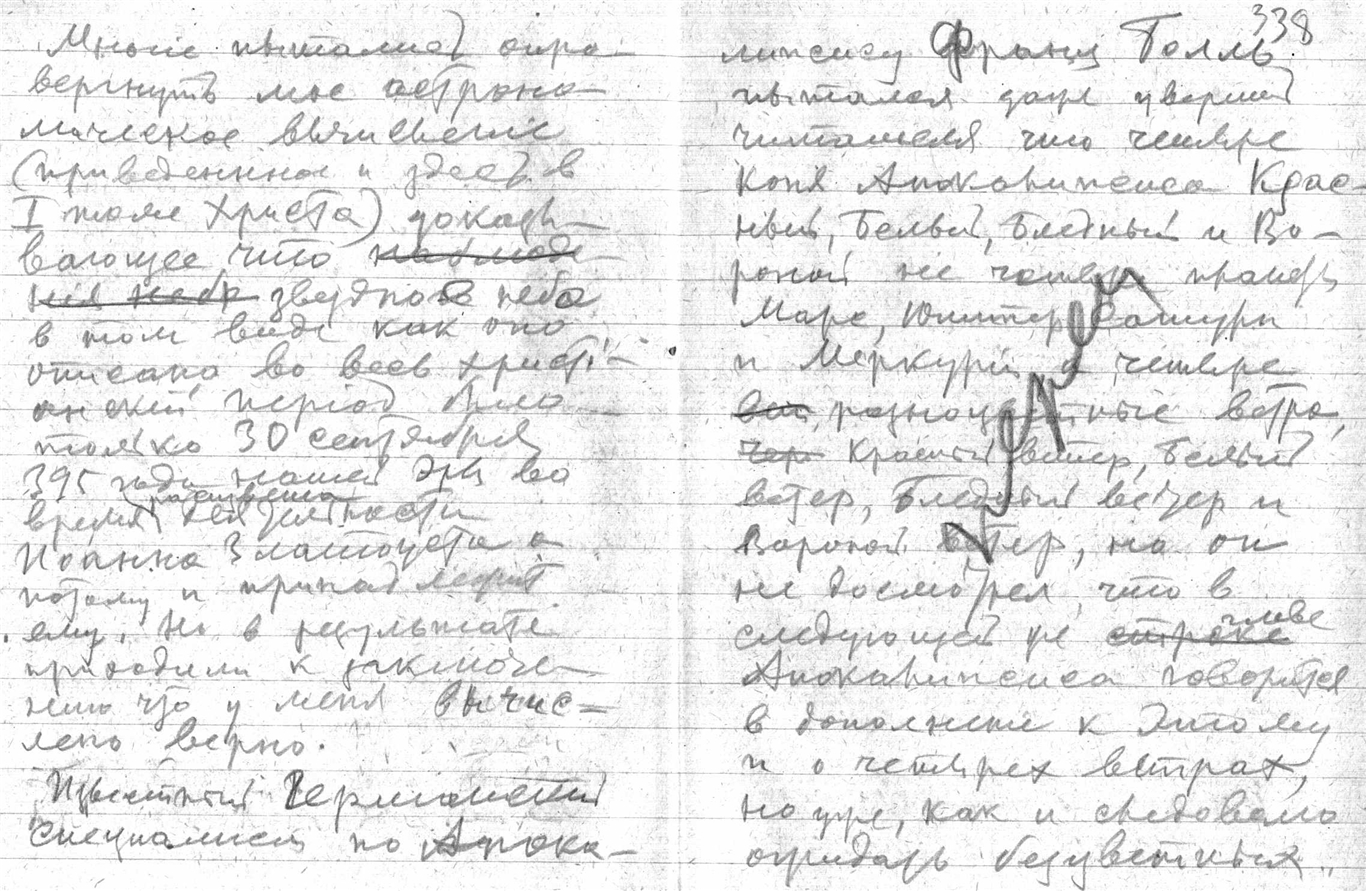 Многие пытались опро-
вергнуть мое астроно-
мическое вычисление
(приведенное и здесь в
I томе Христа) доказы-
вающее что наблюде-
ния неба звездного неба
в том виде как оно
описано во всев христi-
анский перiод было
только 30 сентября
395 года нашей Эры во
время расцвета деятельности
Иоанна Златоуста а
потому и принадлежит
ему. Но в результате
приходили к заключе-
нию что у меня вычис-
лено верно.
Известный Германский
специалист по Апока-
338
липсису Франц Болль
пытался даже уверить
читателя что четыре
коня Апокалипсиса Крас-
ный, Белый, Бледный и Во-
роной не четыре планеты
Марс, Юпитер, Сатурн
и Меркурий а четыре
разноцветные ветра,
Чер Красный ветер, Белый
ветер, Бледный ветер и
Вороной ветер, но он
не досмотрел, что в
следующей же строке главе
Апокалипсиса говорится
в дополнение к этому
и о четырех ветрах,
но уже, как и следовало
ожидать бесцветных.